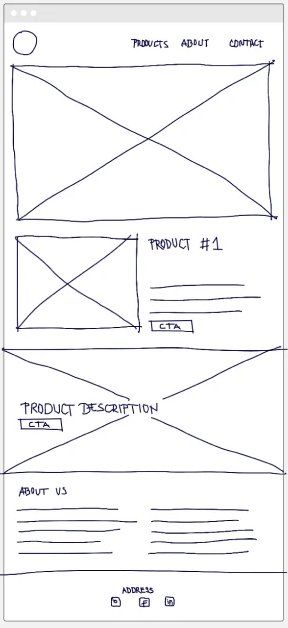 PRODUCTS ABOUT CONTACT
PRODUCT #1
CTA
PRODUCT DESCRIPTION
CTA
ABOUT US
ADDRESS